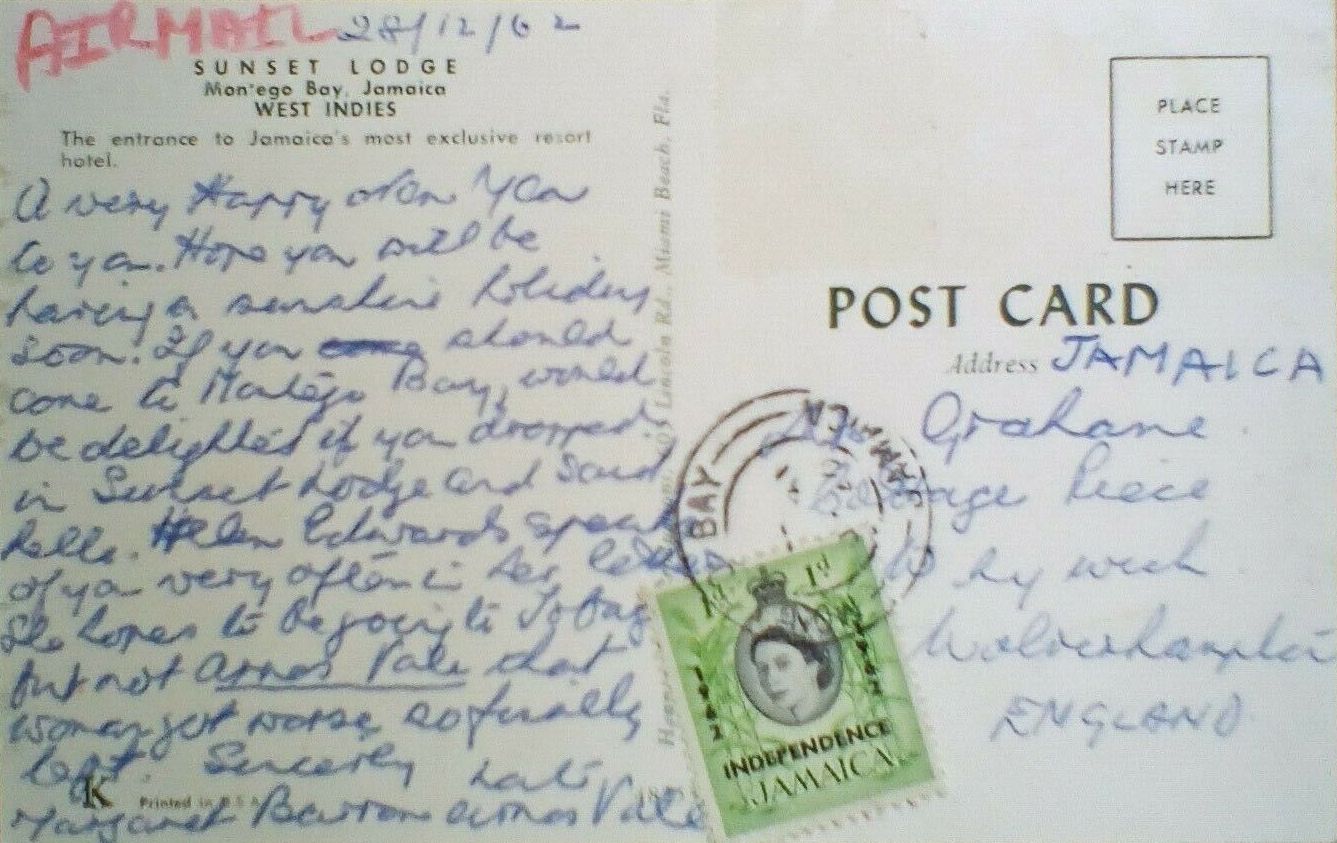 AIRMAIL 28/12/62
SUNSET LODGE
Montego Bay, Jamaica
WEST INDIES
The entrance to Jamaica's most exclusive resort
hotel.
A very Happy New Year
to you. Hope you will be
having a sunshine holiday
soon. If you should
come to Montego Bay, would
be delighted if you dropped
in Sunset Lodge and said
hello. Helen Edwards speaks
of you very often in her letters
She hopes to be going to Tobago
but not Arnos Vale that
woman got worse, so finally
left. Sincerely
Margaret Barron Arnos Vale
K Printed in U.S.A.
Lincoln Rd., Miami Beach, Fla.
PLACE
STAMP
HERE
POST CARD
Address JAMAICA
Grahame
Piece
Wolverhampton
ENGLAND
BAY
JAMAICA
1d
1962
INDEPENDENCE
JAMAICA